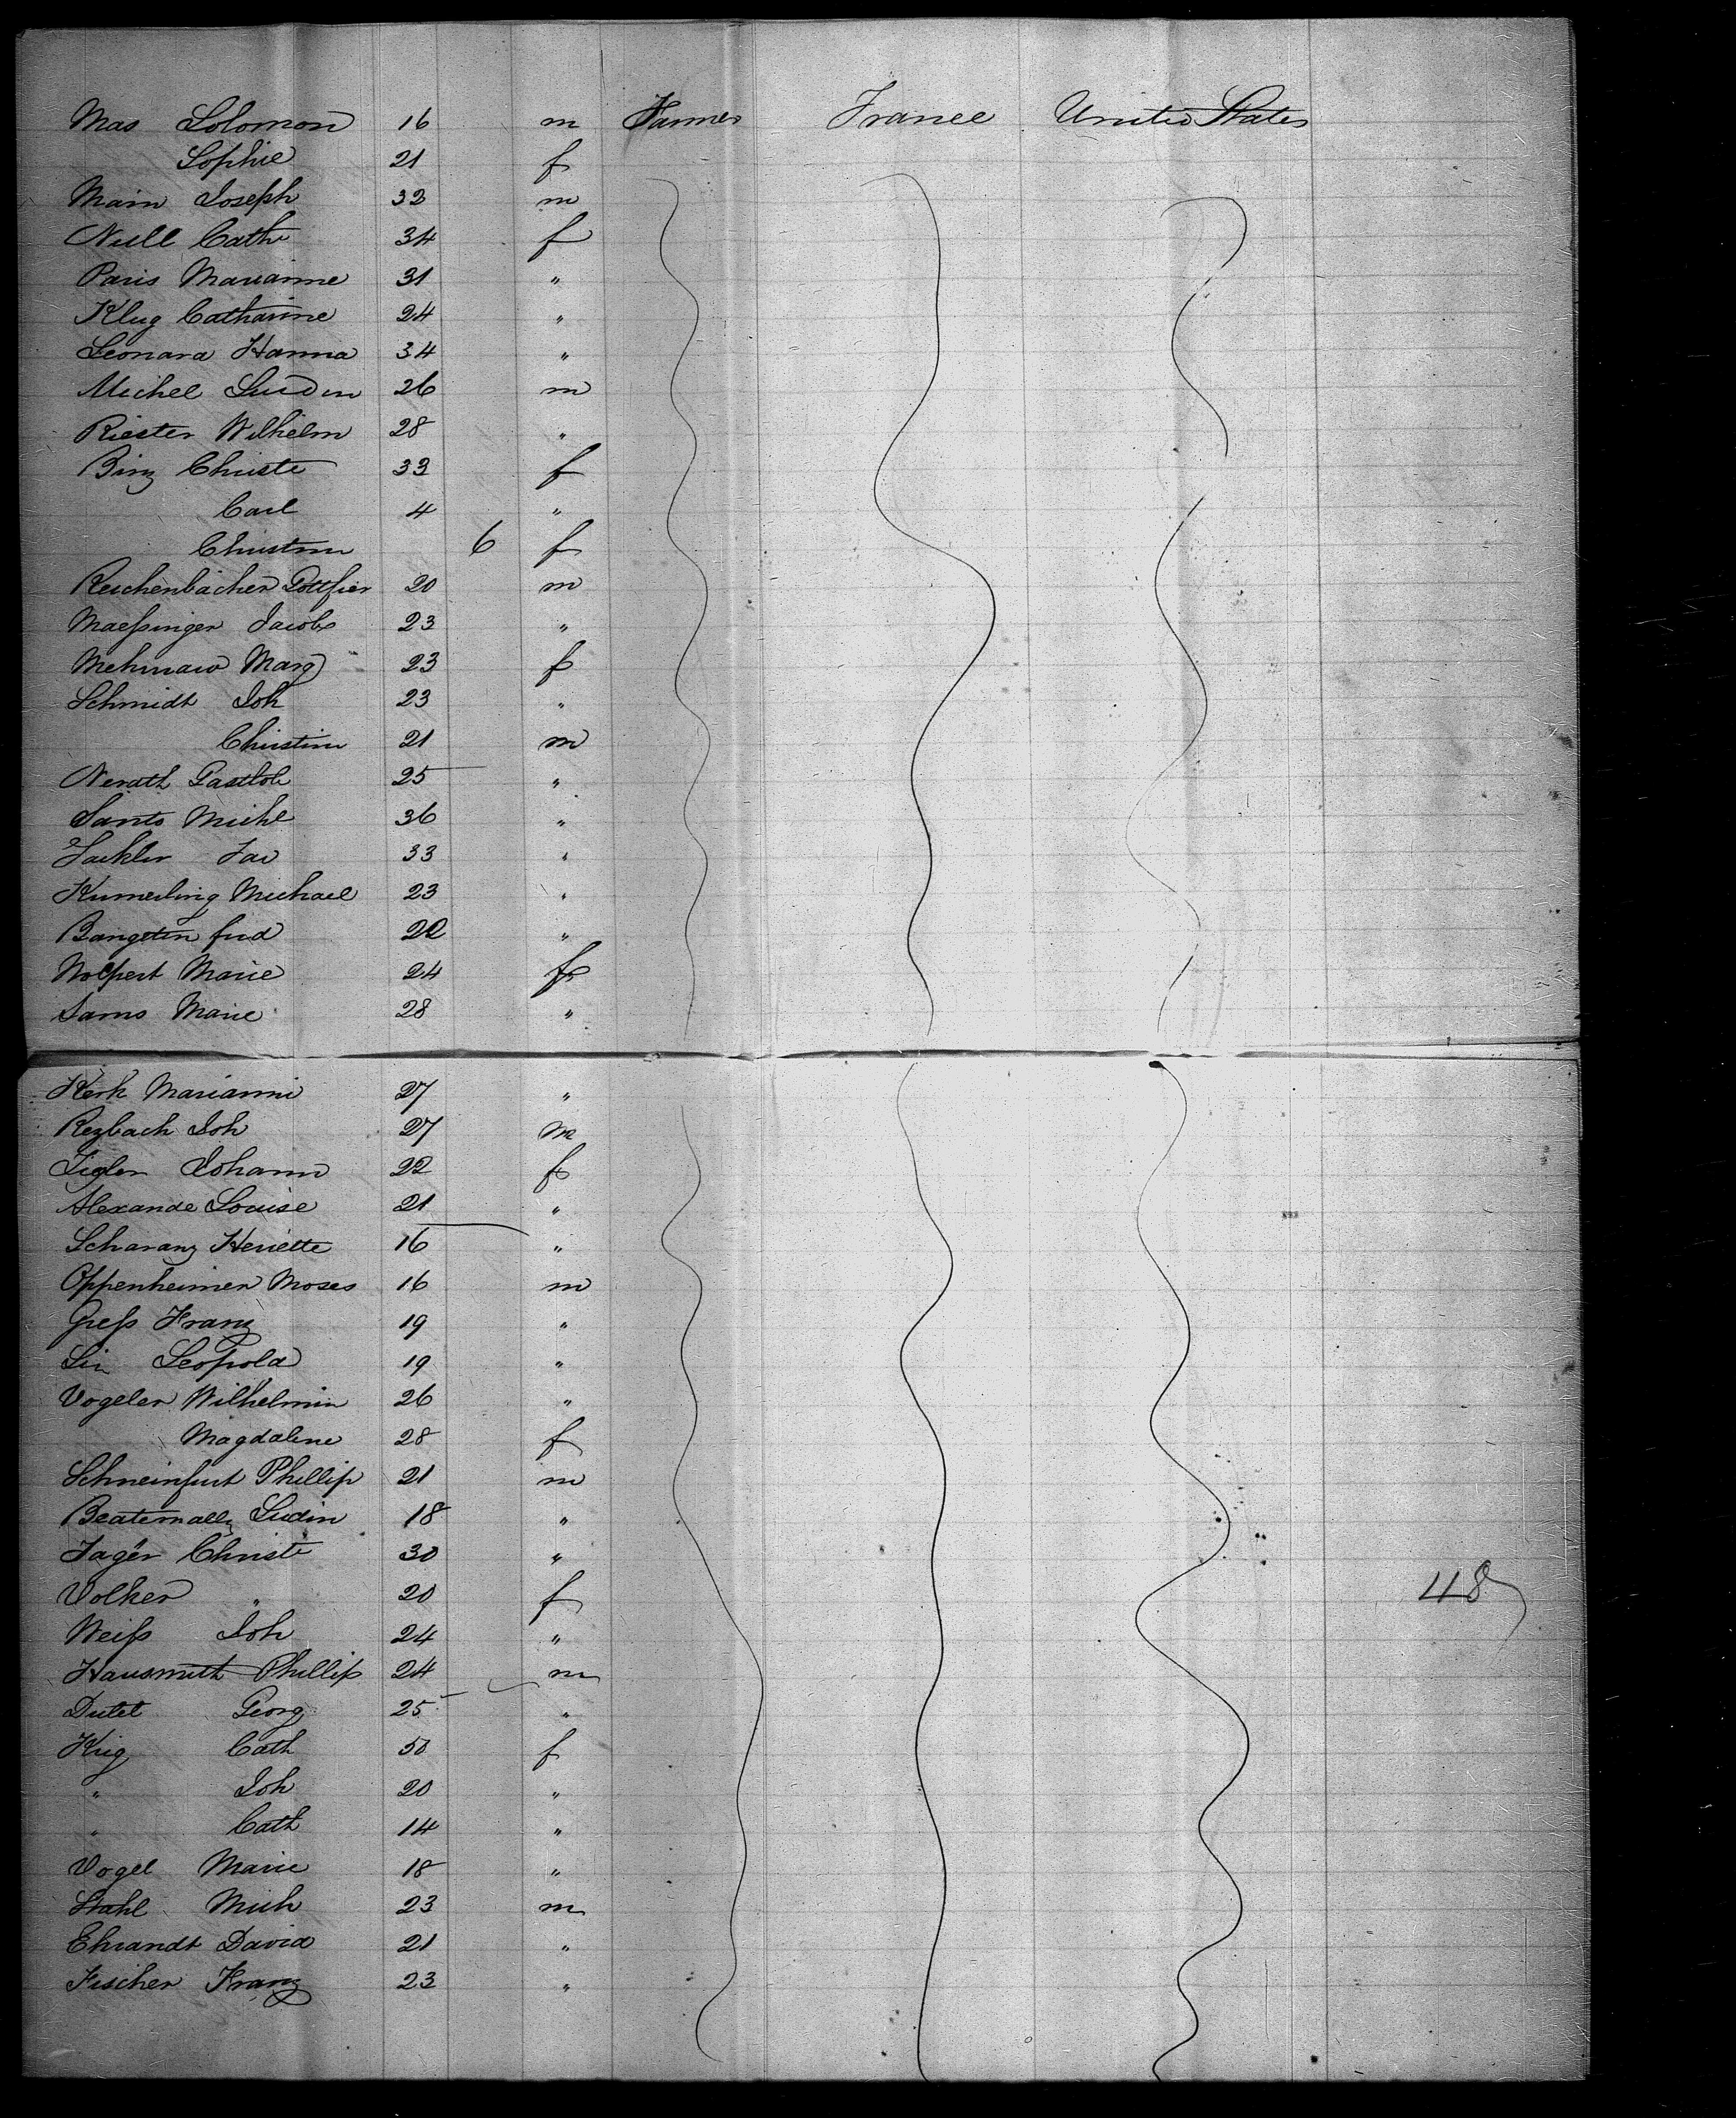 Mas Solomon 16 m Farmer France United States
Sophie 21 f
Main Joseph 32 m
Null Cathe 34 f
Paris Marianne 31 "
Klug Catharine 24 "
Leonara Hanna 34 "
Michel 26 m
Riester Wilhelm 28 "
Binz Christe 33 f
Carl 4 "
Christin 6 f
Reichenbacher Gottfier 20 m
Maeßinger Jacob 23 "
Marg 23 f
Schmidt Joh 23 "
Christine 21 m
Nerath Gastlob 25 "
Santo Michl 36 "
33 "
Kumerling Michael 23 "
22 "
Wolpert Marie 24 f
Sams Marie 28 "
Kerk Marianni 27 "
Rezbach Joh 27 m
Johann 22 f
Alexande Louise 21 "
Scharanz Heriette 16 "
Oppenheimer Moses 16 m
Greß Franz 19 "
Leopold 19 "
Vogeler Wilhelmin 26 "
Magdaline 28 f
Schneinfurt Phillip 21 m
18 "
Jager Christi 30 "
Volker " 20 f
Weiß Joh 24 "
Hausmuth Phillip 24 m
Dutel Georg 25 "
Krig Cath 50 f
" Joh 20 "
" Cath 14 "
Vogel Marie 18 "
Stahl Mich 23 m
Ehrandt David 21 "
Fischer Franz 23 "
48